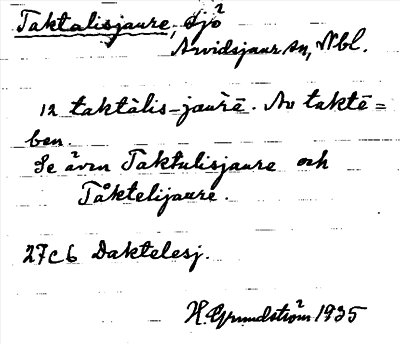 Taktalisjaure, sjö
Arvidsjaur sn, Nbl.
12 taktàlis-jaùrē. Av taktē=
ben.
Se även Taktulisjaure och
Tåktelijaure.
27c6 Daktelesj.
H. Grundström 1935